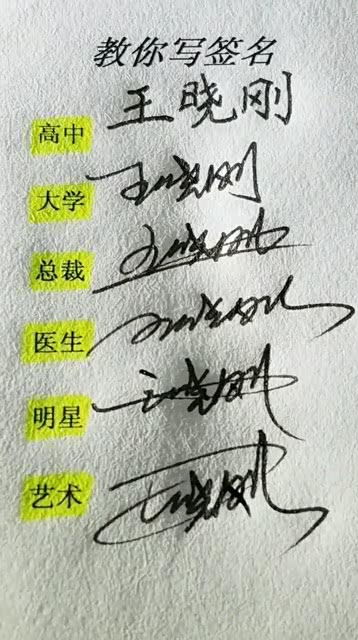 教你写签名
高中 王晓刚
大学 王晓刚
总裁 王晓刚
医生 王晓刚
明星 王晓刚
艺术 王晓刚